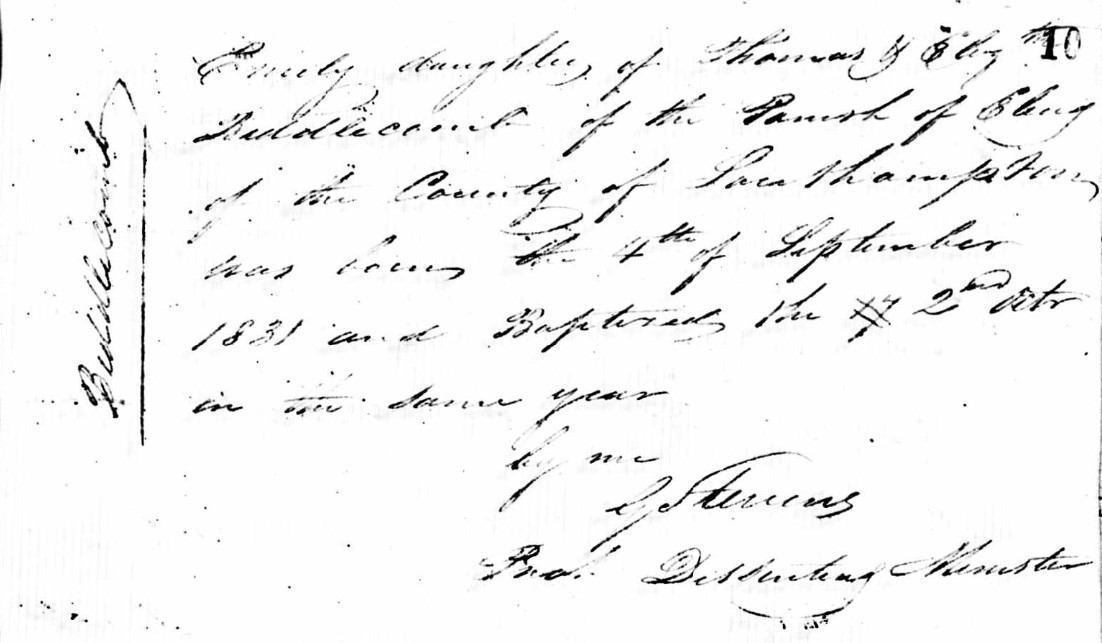 10
Biddlecomb
Emily daughter of Thomas & Elizth
Biddlecomb of the Parish of Eling
of the County of Southampton
was born the 4th of September
1831 and Baptized the 2nd Octr
in the same year
by me
G Stevens
Prot. Dissenting Minister